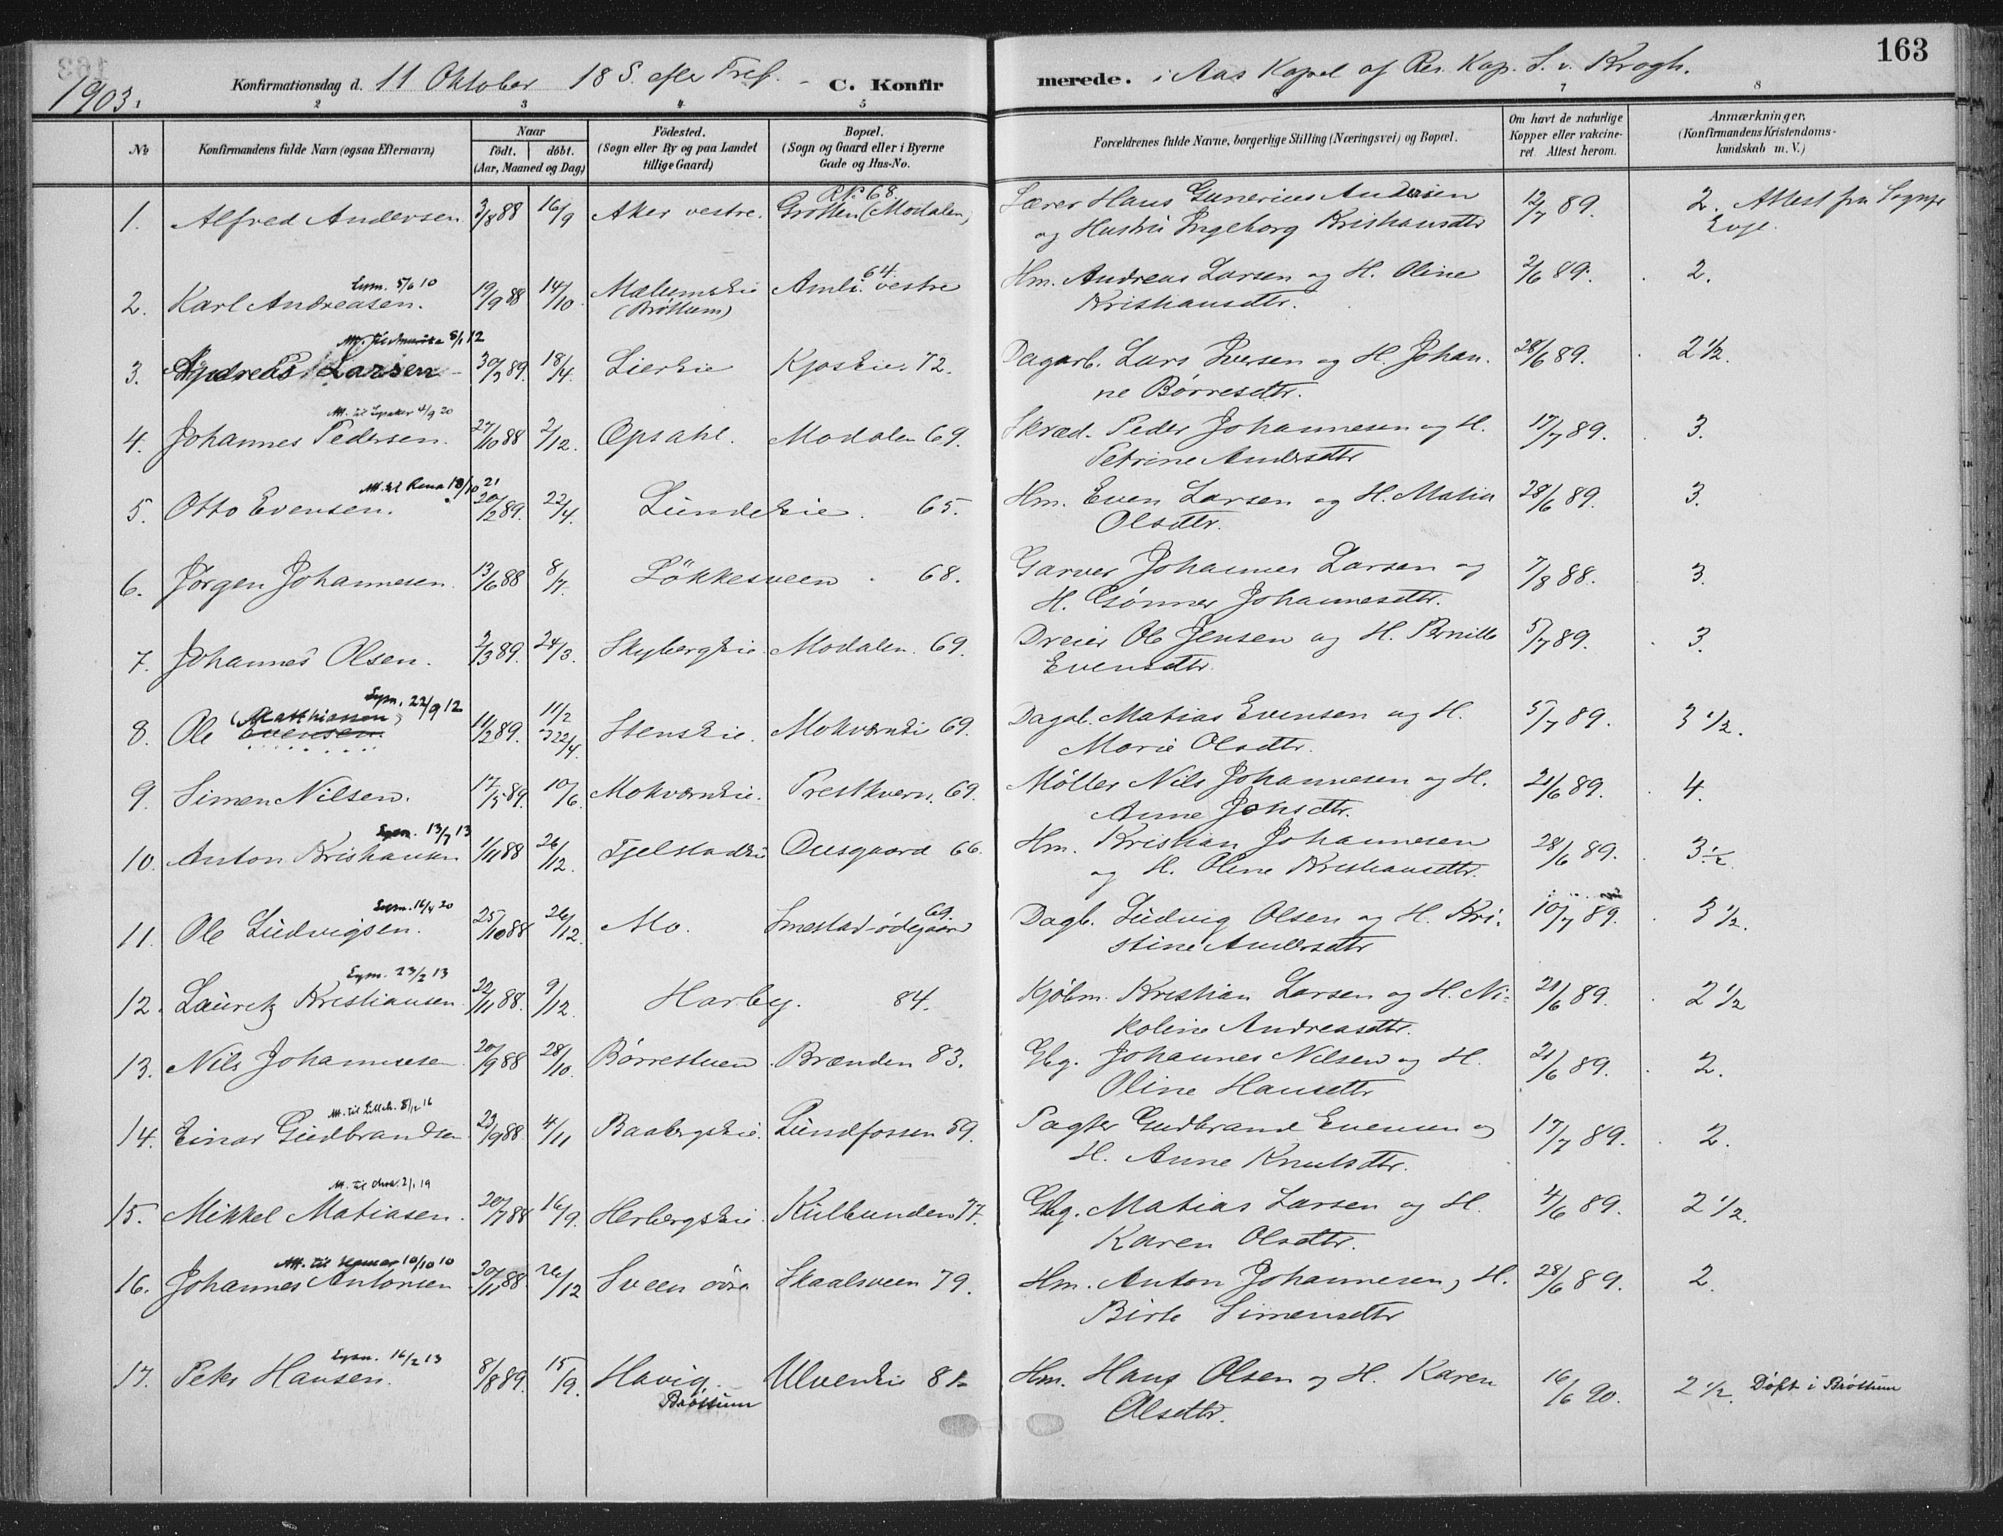 163
1903.
Konfirmationsdag d. 11 Oktober 18 S. efter Tref. – C. Konfirmerede. i Aas Kapel af Res. Kap. S. v. Krogh.
2 3 4 5 7 8
No
Konfirmandens fulde Navn (ogsaa Efternavn)
Naar
født. døbt.
(Aar, Maaned og Dag)
Födested.
(Sogn eller By og paa Landet
tillige Gaard)
Bopæl.
(Sogn og Gaard eller i Byerne
Gade og Hus-No.
Forældrenes fulde Navne, borgerlige Stilling (Næringsvei) og Bopæl.
Om havt de naturlige
Kopper eller vakcineret.
Attest herom.
Anmærkninger,
(Konfirmandens Kristendomskundskab
m. V.)
1. Alfred Andersen 3/8 88 16/9 Aker vestre. Grotten (Modalen) 68. Lærer Hans Gunerius Andersen 12/7 89. 2. Attest fra
og Hustru Ingeborg Kristiansdtr
2. Karl Andreasen. 5/6 10 19/9 88 14/10 Mælumseie Amli vestre 64. Hm. Andreas Larsen og H. Oline 2/6 89. 2.
(Brøttum) Kristiansdtr.
3. Andreas Larsen 5/1 12 30/3 89. 18/4 Liereie Kjoseie 72. Dagarb. Lars Iversen og H. Johan- 28/6 89. 2 1/2.
ne Børresdtr.
4. Johannes Pedersen. 4/9 20 27/10 88 2/12. Opsahl. Modalen 69. Skræd. Peder Johannesen og H. 17/7 89. 3.
Petrine Andersdtr
5. Otto Evensen. Att. til Rena 18/10 21 20/2 89. 22/4. Lundeeie. 65. Hm. Even Larsen og H. Matia 28/6 89. 3.
Olsdtr.
6. Jørgen Johannesen 13/6 88 8/7. Løkkesveen. 68. Garver Johannes Larsen og 7/8 88. 3.
H. Gønner Johannesdtr.
7. Johannes Olsen. 2/3 89. 24/3. Skybergeie. Modalen. 69. Dreier Ole Jensen og H. Pernille 5/7 89. 3.
Evensdtr.
8. Ole Evensen. (Matthiassen) Egm. 22/9 12 11/2 89. 11/2 22/4 Stenseie. Mokværneie 69. Dagl. Matias Evensen og H. 5/7 89. 3 1/2.
Marie Olsdtr.
9. Simen Nilsen. 17/5 89. 10/6. Mokværneie. Prestkvern. 69. Møller Nils Johannesen og H. 21/6 89. 4.
Anne Jonsdtr.
10. Anton Kristiansen Egm. 13/7 13 1/11 88 26/12. Fjelstadeie Onsgaard 66. Hm. Kristian Johannesen 28/6 89. 3 1/2
og H. Oline Kristiansdtr.
11. Ole Ludvigsen. Egm. 16/4 20 25/10 88 26/12. Mo. Smestad-ødegaard 69. Dagb. Ludvig Olsen og H. Kri- 10/7 89. 3 1/2.
stine Andersdtr
12. Lauretz Kristiansen. Egm. 23/2 13 22/11 88. 9/12. Harby. 84. Kjøbm. Kristian Larsen og H. Ni- 21/6 89. 2 1/2
koline Andreasdtr.
13. Nils Johannesen 20/9 88 28/10. Børrestuen Brænden 83. Gbg. Johannes Nilsen og H. 21/6 89. 2.
Oline Hansdtr
14. Einar Gudbrandsen Att. til Lilleh. 5/12 16 23/9 88 4/11 Baabergseie. Lundfossen 59. Pagter Gudbrand Evensen og 17/7 89. 2.
H. Anne Knutsdtr.
15. Mikkel Matiasen. 2/1 19 20/7 88 16/9. Herbergseie. Kulbunden 77. Gbg. Matias Larsen og H. 4/6 89. 2 1/2.
Karen Olsdtr.
16. Johannes Antonsen Att. til Hamar 10/10 10 20/11 88 26/12 Sveen øvre Skaalsveen 79. Hm. Anton Johannesen, H. 28/6 89. 2.
Birte Simensdtr
17. Peter Hansen. Egm. 16/2 13 8/8 89. 15/9. Havig. Ulveneie 81 Hm. Hans Olsen og H. Karen 16/6 90. 2 1/2. Døpt i Brøttum
Brøttum Olsdtr.